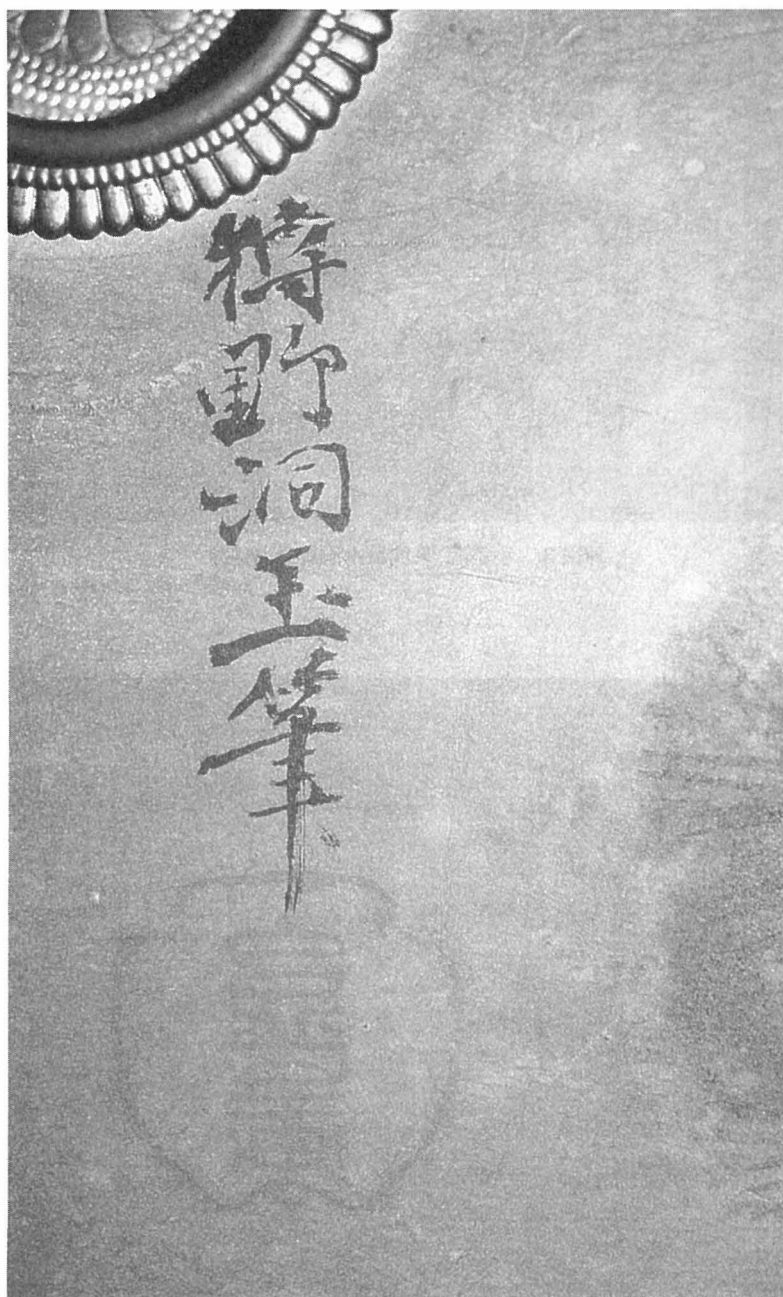 狩野洞玉筆